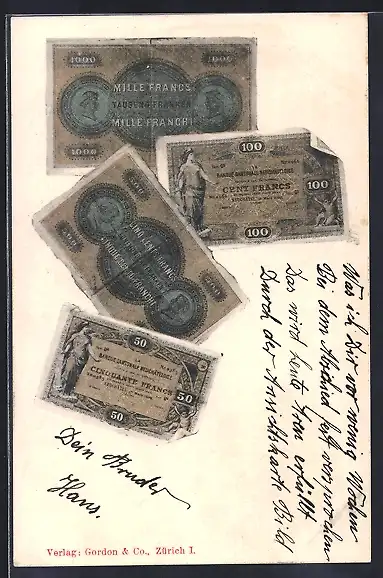 1000 1000
MILLE FRANCS
TAUSEND FRANKEN
MILLE FRANCHI
1000 1000
100
BANQUE CANTONALE NEUCHATELOISE
CENT FRANCS
100
100
500
500
CINQ CENTS FRANCS
CINQUECENTO FRANCHI
500
500
50
BANQUE CANTONALE NEUCHATELOISE
CINQUANTE FRANCS
50
50
Was ich Dir vor wenig Wochen
Bei dem Abschied hab versprochen
Das wird heute schon erfüllt
Durch der Ansichtskart Bild
Dein Bruder
Hans.
Verlag: Gordon & Co., Zürich I.